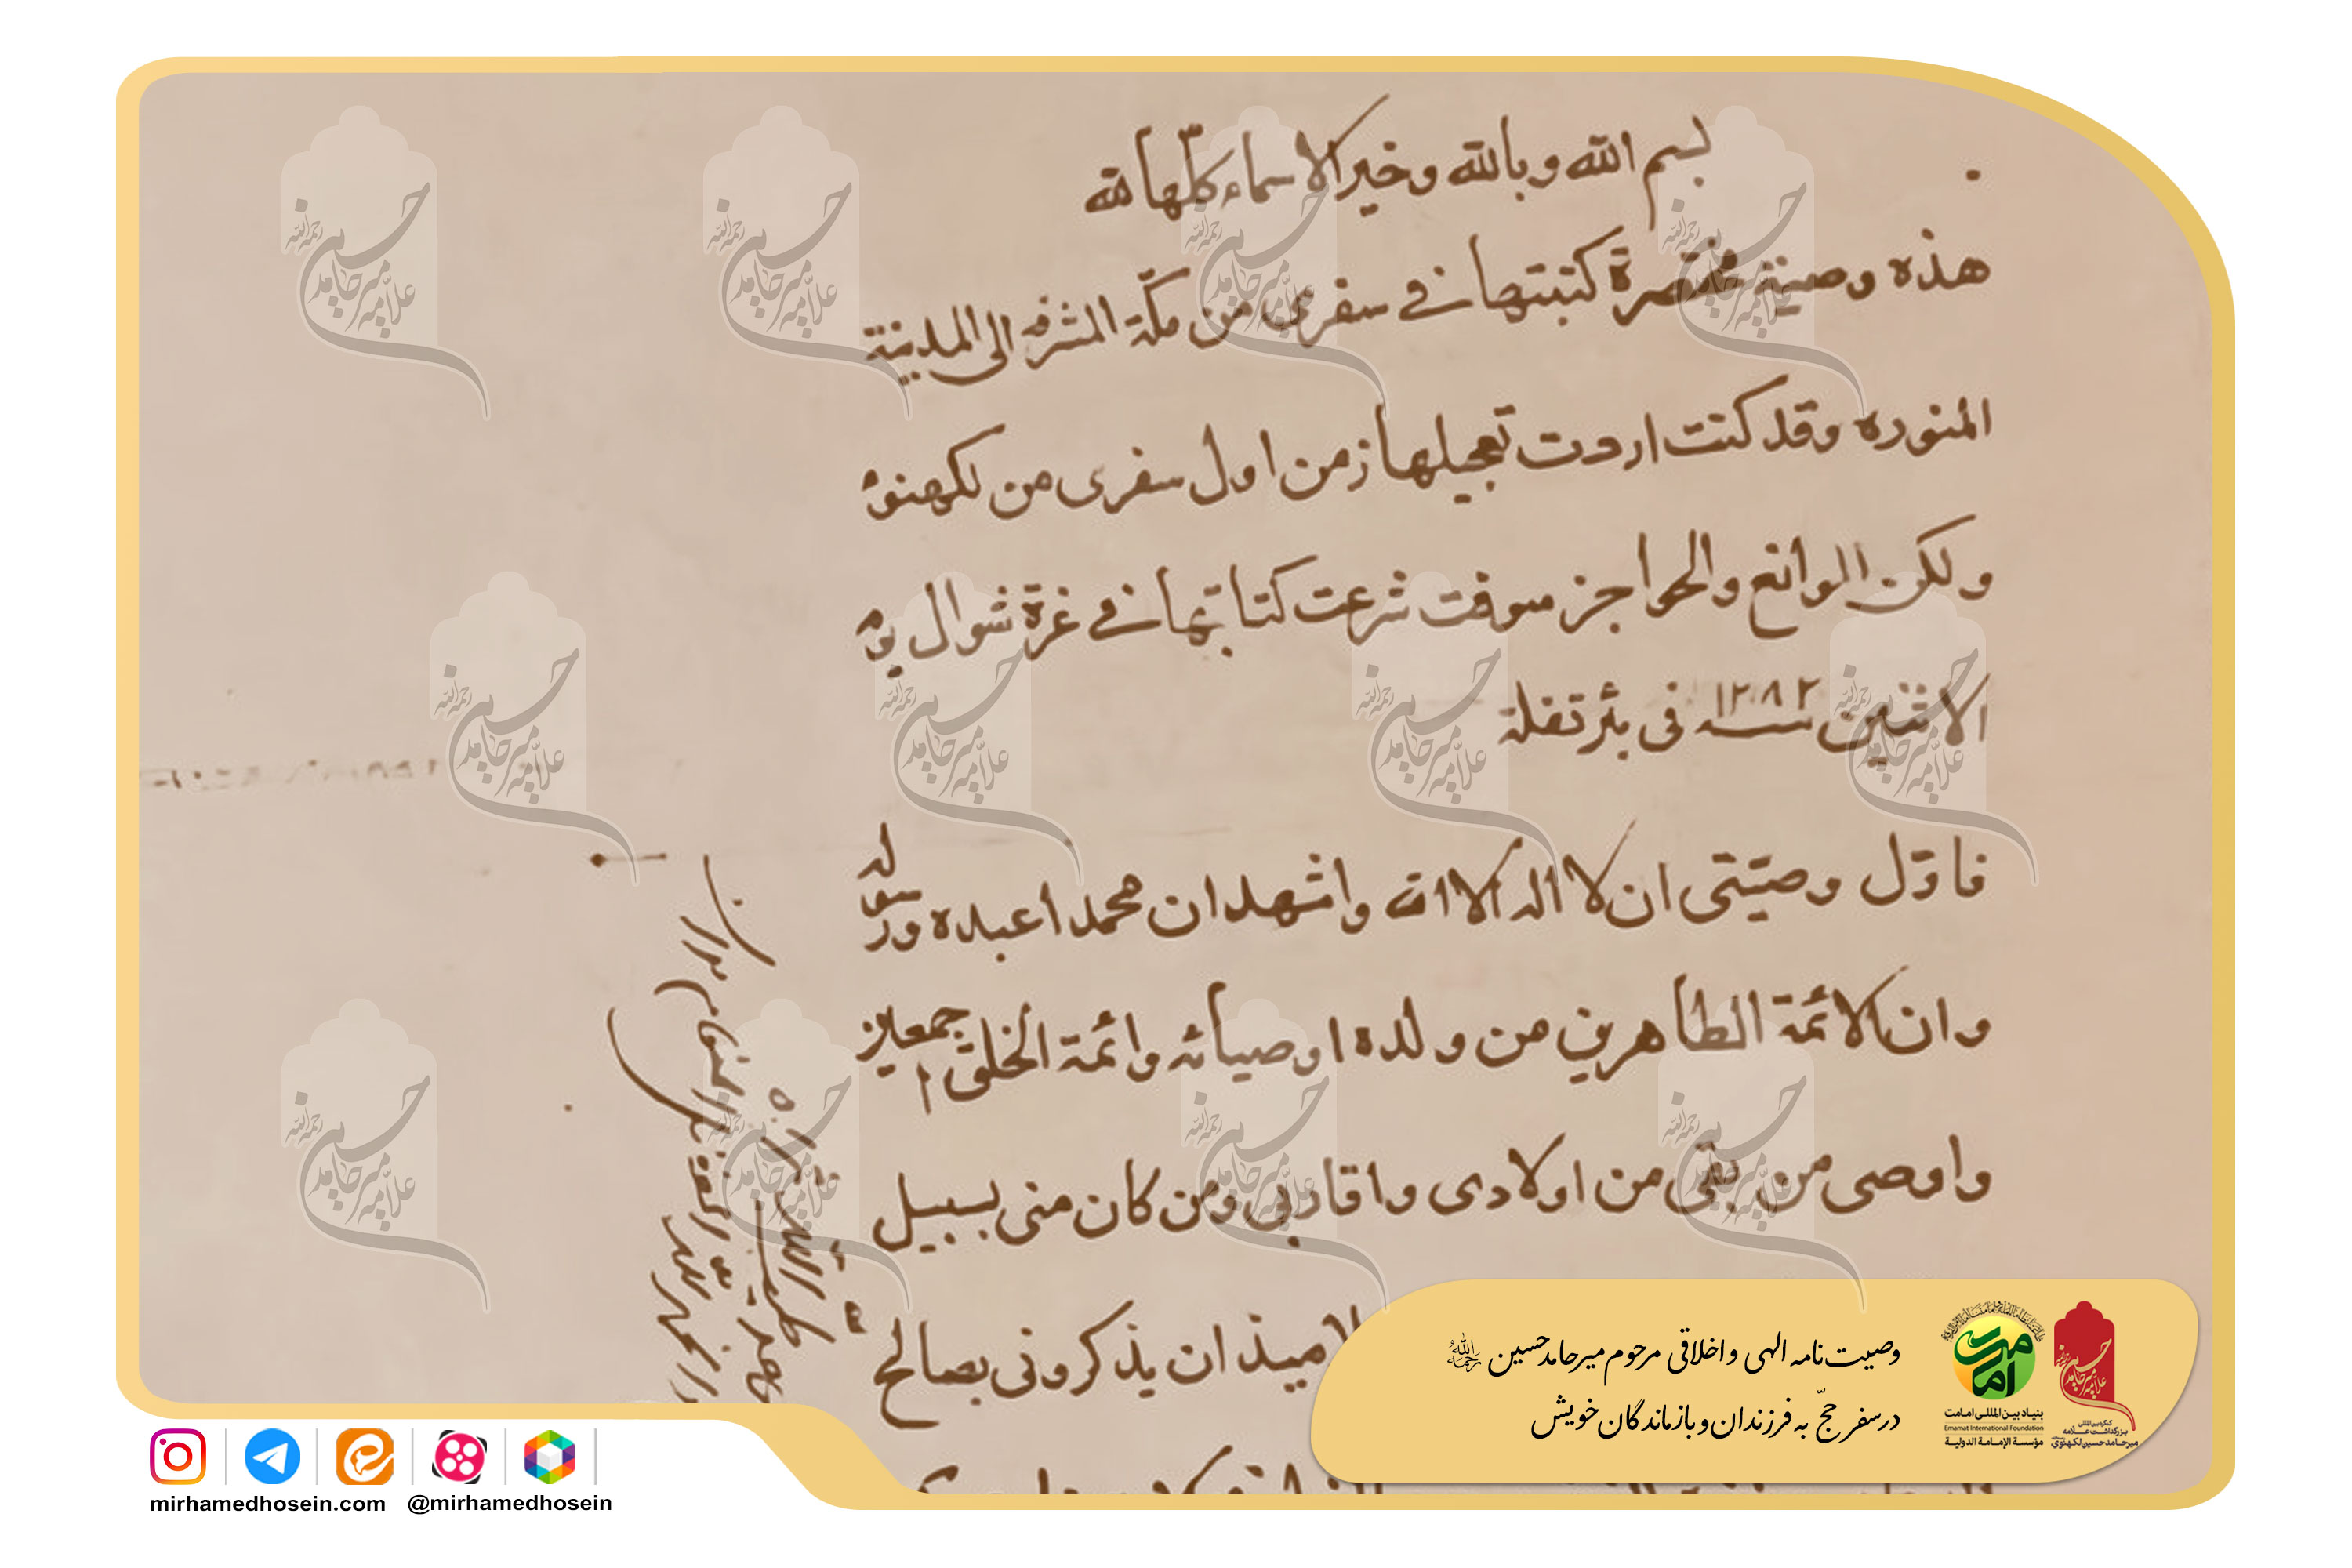 بسم الله وبالله وخير الاسماء كلّها لله
هذه وصية مختصرة كتبتها في سفرى من مكّة المشرفه الى المدينة
المنوره وقد كنت اردت تعجيلها زمن اول سفرى من لكهنوء
ولكن الموانع والحواجز سوفت شرعت كتابتها في غرة شوال يوم
الاثنين سنه ١٢٨٢ فى بئر تفلة
فاوّل وصيّتى ان لا اله الا الله واشهد ان محمدا عبده ورسوله
وان الائمة الطاهرين من ولده اوصيائه وائمة الخلق اجمعين
واوصى من بقى من اولادى واقاربى ومن كان منى بسبيل
ان يذكرونى بصالح
وصیت‌نامه الهی و اخلاقی مرحوم میرحامدحسین رحمه الله
در سفر حجّ به فرزندان و بازماندگان خویش
امامت
بنیاد بین‌المللی امامت
Emamat International Foundation
مؤسسة الإمامة الدولية
علامه میرحامد حسین
کنگره بین‌المللی
بزرگداشت علامه
میرحامدحسین لکهنوی
mirhamedhosein.com
@mirhamedhosein